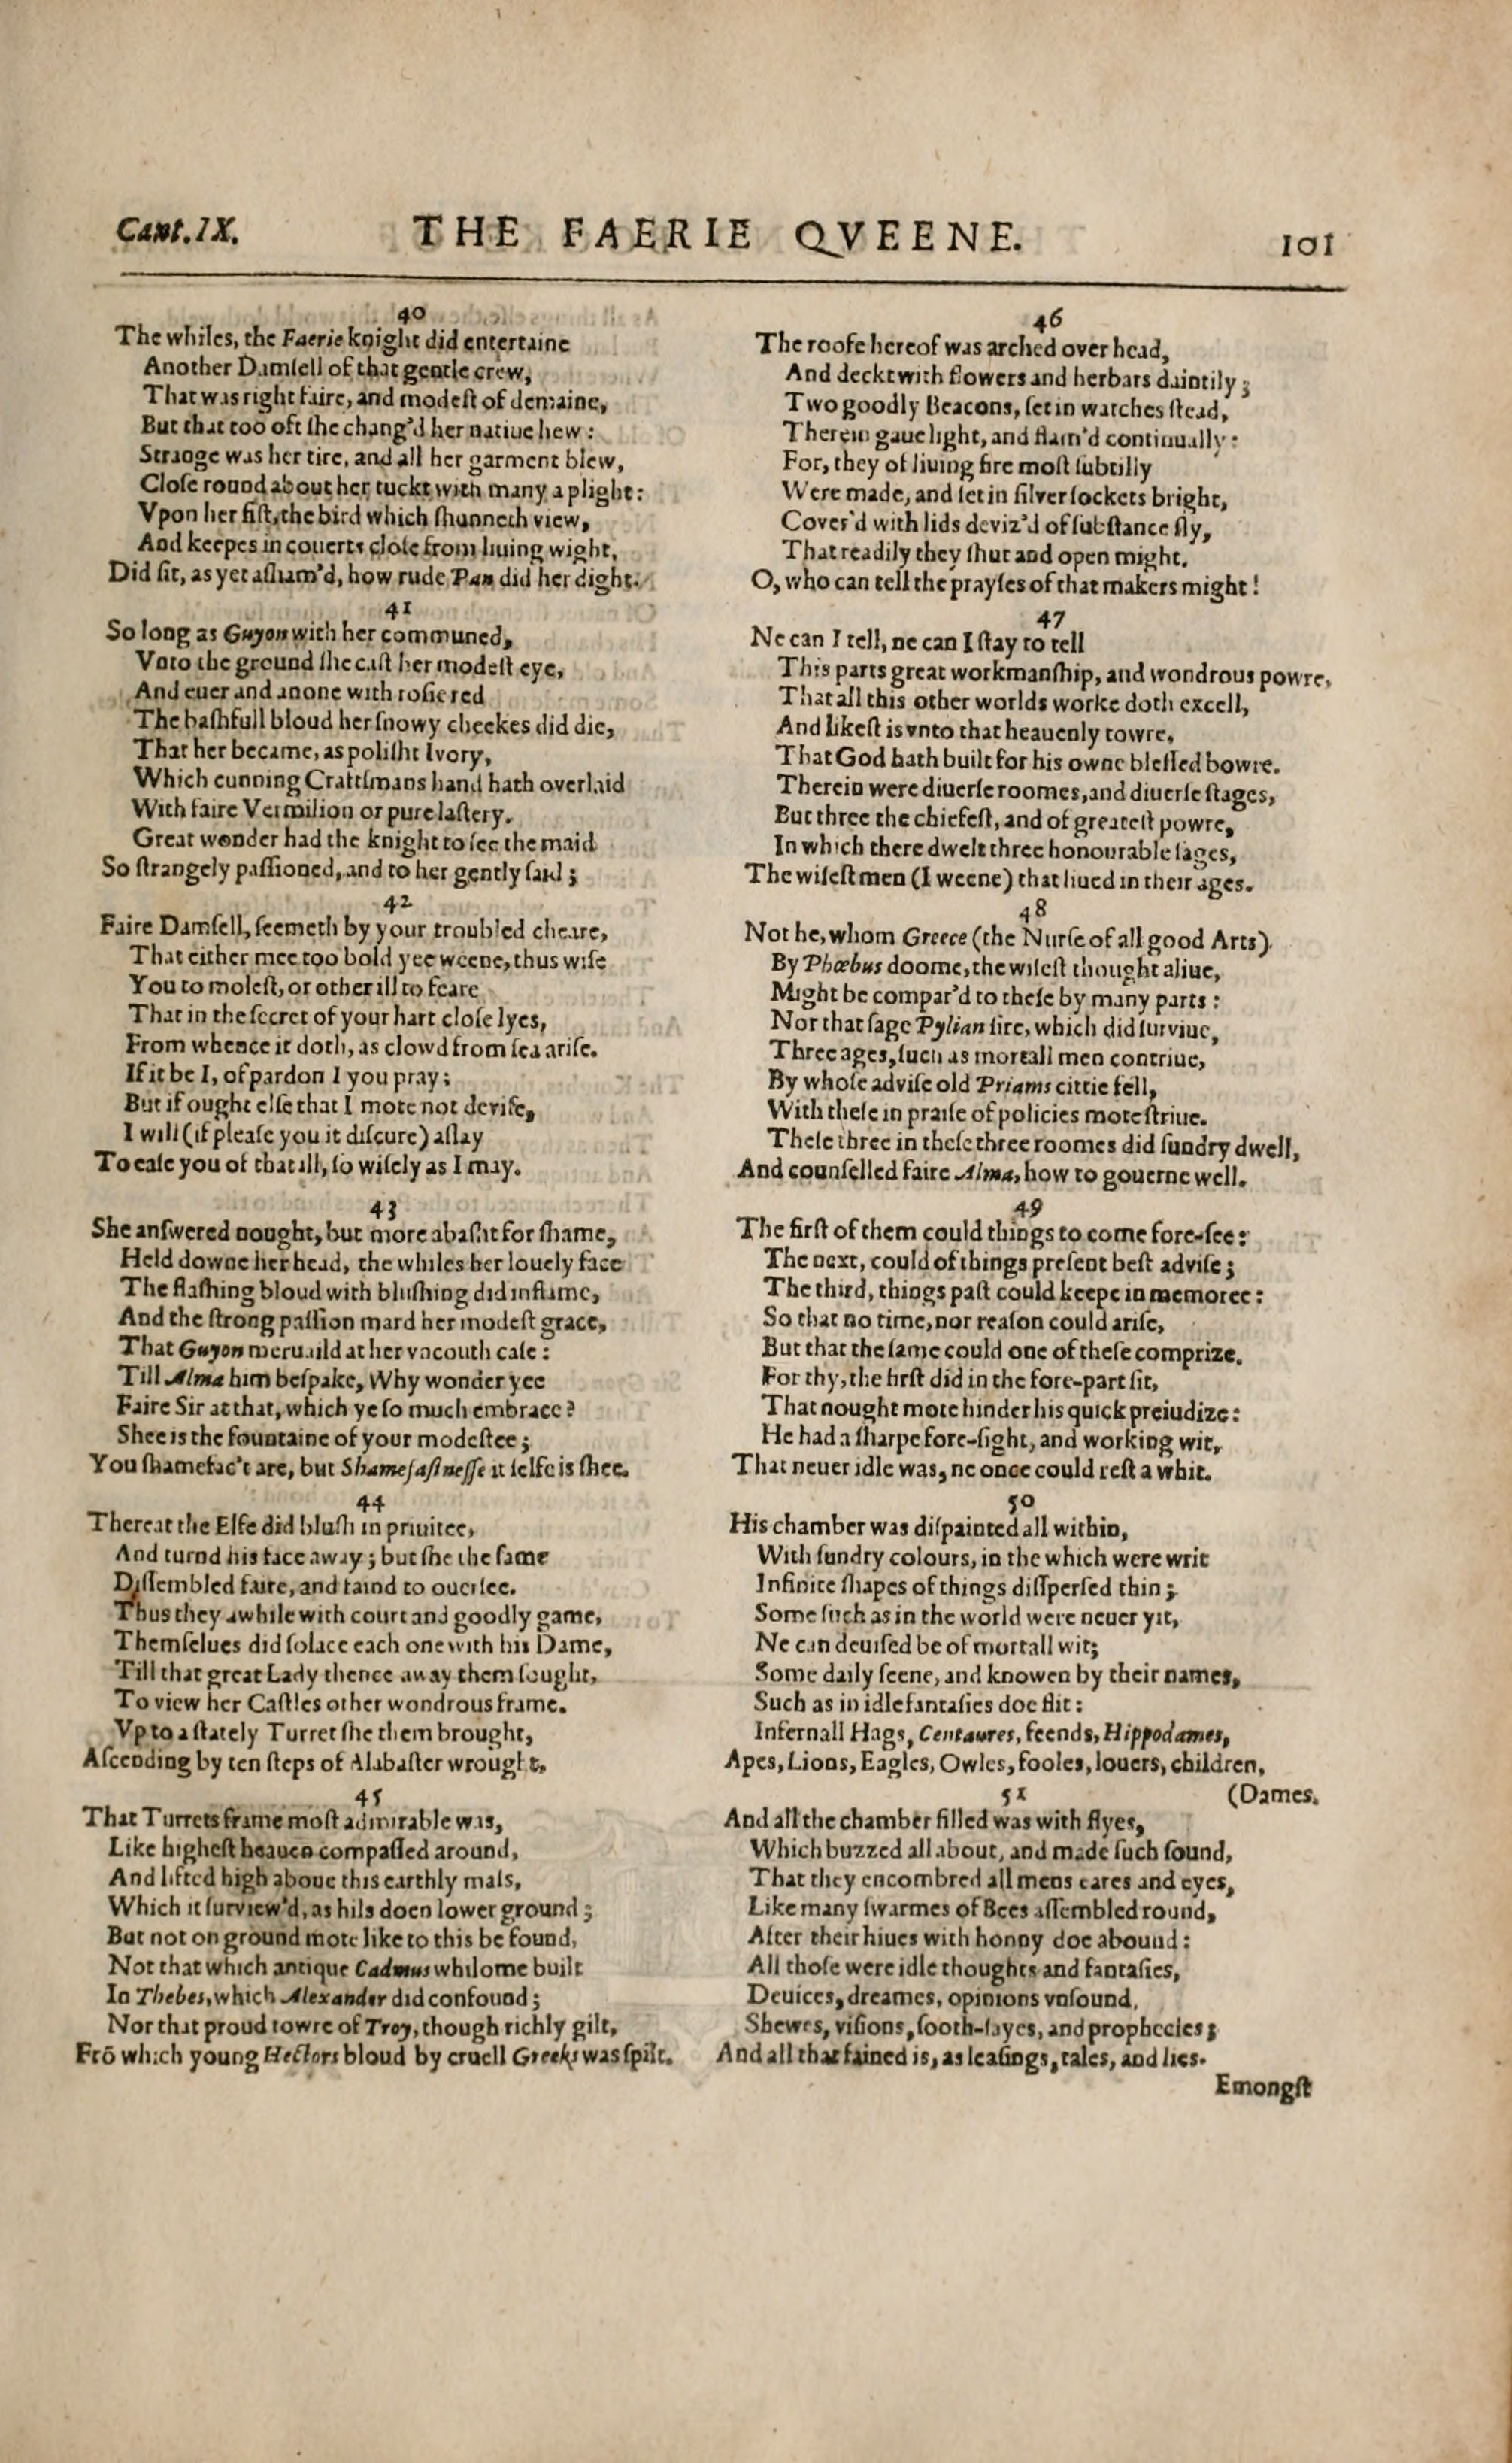 Cant. IX.
THE FAERIE QVEENE.
101
40
The whiles, the Faerie knight did entertaine
Another Damſell of that gentle crew,
That was right faire, and modeſt of demaine,
But that too oft ſhe chang'd her natiue hew:
Strange was her tire, and all her garment blew,
Cloſe round about her tuckt with many a plight:
Vpon her fiſt, the bird which ſhunneth view,
And keepes in couerts cloſe from liuing wight,
Did ſit, as yet aſham'd, how rude Pan did her dight.
41
So long as Guyon with her communed,
Vnto the ground ſhe caſt her modeſt eye,
And euer and anone with roſie red
The baſhfull bloud her ſnowy cheekes did die,
That her became, as poliſht Ivory,
Which cunning Craftſmans hand hath overlaid
With faire Vermilion or pure laſtery.
Great wonder had the knight to ſee the maid
So ſtrangely paſſioned, and to her gently ſaid;
42
Faire Damſell, ſeemeth by your troubled cheare,
That either mee too bold yee weene, thus wiſe
You to moleſt, or other ill to feare
That in the ſecret of your hart cloſe lyes,
From whence it doth, as clowd from ſea ariſe.
If it be I, of pardon I you pray;
But if ought elſe that I mote not deviſe,
I will (if pleaſe you it diſcure) aſſay
To eaſe you of that ill, ſo wiſely as I may.
43
She anſwered nought, but more abaſht for ſhame,
Held downe her head, the whiles her louely face
The flaſhing bloud with bluſhing did inflame,
And the ſtrong paſſion mard her modeſt grace,
That Guyon meruaild at her vncouth caſe:
Till Alma him beſpake, Why wonder yee
Faire Sir at that, which ye ſo much embrace?
Shee is the fountaine of your modeſtee;
You ſhamefac't are, but Shamefaſtneſſe it ſelfe is ſhee.
44
Thereat the Elfe did bluſh in priuitee,
And turnd his face away; but ſhe the ſame
Diſſembled faire, and faind to ouerſee.
Thus they awhile with court and goodly game,
Themſelues did ſolace each one with his Dame,
Till that great Lady thence away them ſought,
To view her Caſtles other wondrous frame.
Vp to a ſtately Turret ſhe them brought,
Aſcending by ten ſteps of Alabaſter wrought.
45
That Turrets frame moſt admirable was,
Like higheſt heauen compaſſed around,
And lifted high aboue this earthly maſs,
Which it ſurview'd, as hils doen lower ground;
But not on ground mote like to this be found,
Not that which antique Cadmus whilome built
In Thebes, which Alexander did confound;
Nor that proud towre of Troy, though richly gilt,
Frō which young Hectors bloud by cruell Greeks was ſpilt.
46
The roofe hereof was arched over head,
And deckt with flowers and herbars daintily;
Two goodly Beacons, ſet in watches ſtead,
Therein gaue light, and flam'd continually:
For, they of liuing fire moſt ſubtilly
Were made, and ſet in ſilver ſockets bright,
Cover'd with lids deviz'd of ſubſtance ſly,
That readily they ſhut and open might.
O, who can tell the prayſes of that makers might!
47
Ne can I tell, ne can I ſtay to tell
This parts great workmanſhip, and wondrous powre,
That all this other worlds worke doth excell,
And likeſt is vnto that heauenly towre,
That God hath built for his owne bleſſed bowre.
Therein were diuerſe roomes, and diuerſe ſtages,
But three the chiefeſt, and of greateſt powre,
In which there dwelt three honourable ſages,
The wiſeſt men (I weene) that liued in their ages.
48
Not he, whom Greece (the Nurſe of all good Arts)
By Phœbus doome, the wiſeſt thought aliue,
Might be compar'd to theſe by many parts:
Nor that ſage Pylian ſire, which did ſurviue,
Three ages, ſuch as mortall men contriue,
By whoſe adviſe old Priams cittie fell,
With theſe in praiſe of policies mote ſtriue.
Theſe three in theſe three roomes did ſundry dwell,
And counſelled faire Alma, how to gouerne well.
49
The firſt of them could things to come fore-ſee:
The next, could of things preſent beſt adviſe;
The third, things paſt could keepe in memoree:
So that no time, nor reaſon could ariſe,
But that the ſame could one of theſe comprize.
For thy, the firſt did in the fore-part ſit,
That nought mote hinder his quick preiudize:
He had a ſharpe fore-ſight, and working wit,
That neuer idle was, ne once could reſt a whit.
50
His chamber was diſpainted all within,
With ſundry colours, in the which were writ
Infinite ſhapes of things diſſperſed thin;
Some ſuch as in the world were neuer yit,
Ne can deuiſed be of mortall wit;
Some daily ſeene, and knowen by their names,
Such as in idle fantaſies doe flit:
Infernall Hags, Centaures, feends, Hippodames,
Apes, Lions, Eagles, Owles, fooles, louers, children,
(Dames.
51
And all the chamber filled was with flyes,
Which buzzed all about, and made ſuch ſound,
That they encombred all mens eares and eyes,
Like many ſwarmes of Bees aſſembled round,
After their hiues with honny doe abound:
All thoſe were idle thoughts and fantaſies,
Deuices, dreames, opinions vnſound,
Shewes, viſions, ſooth-ſayes, and propheciesſ;
And all that fained is, as leaſings, tales, and lies.
Emongſt